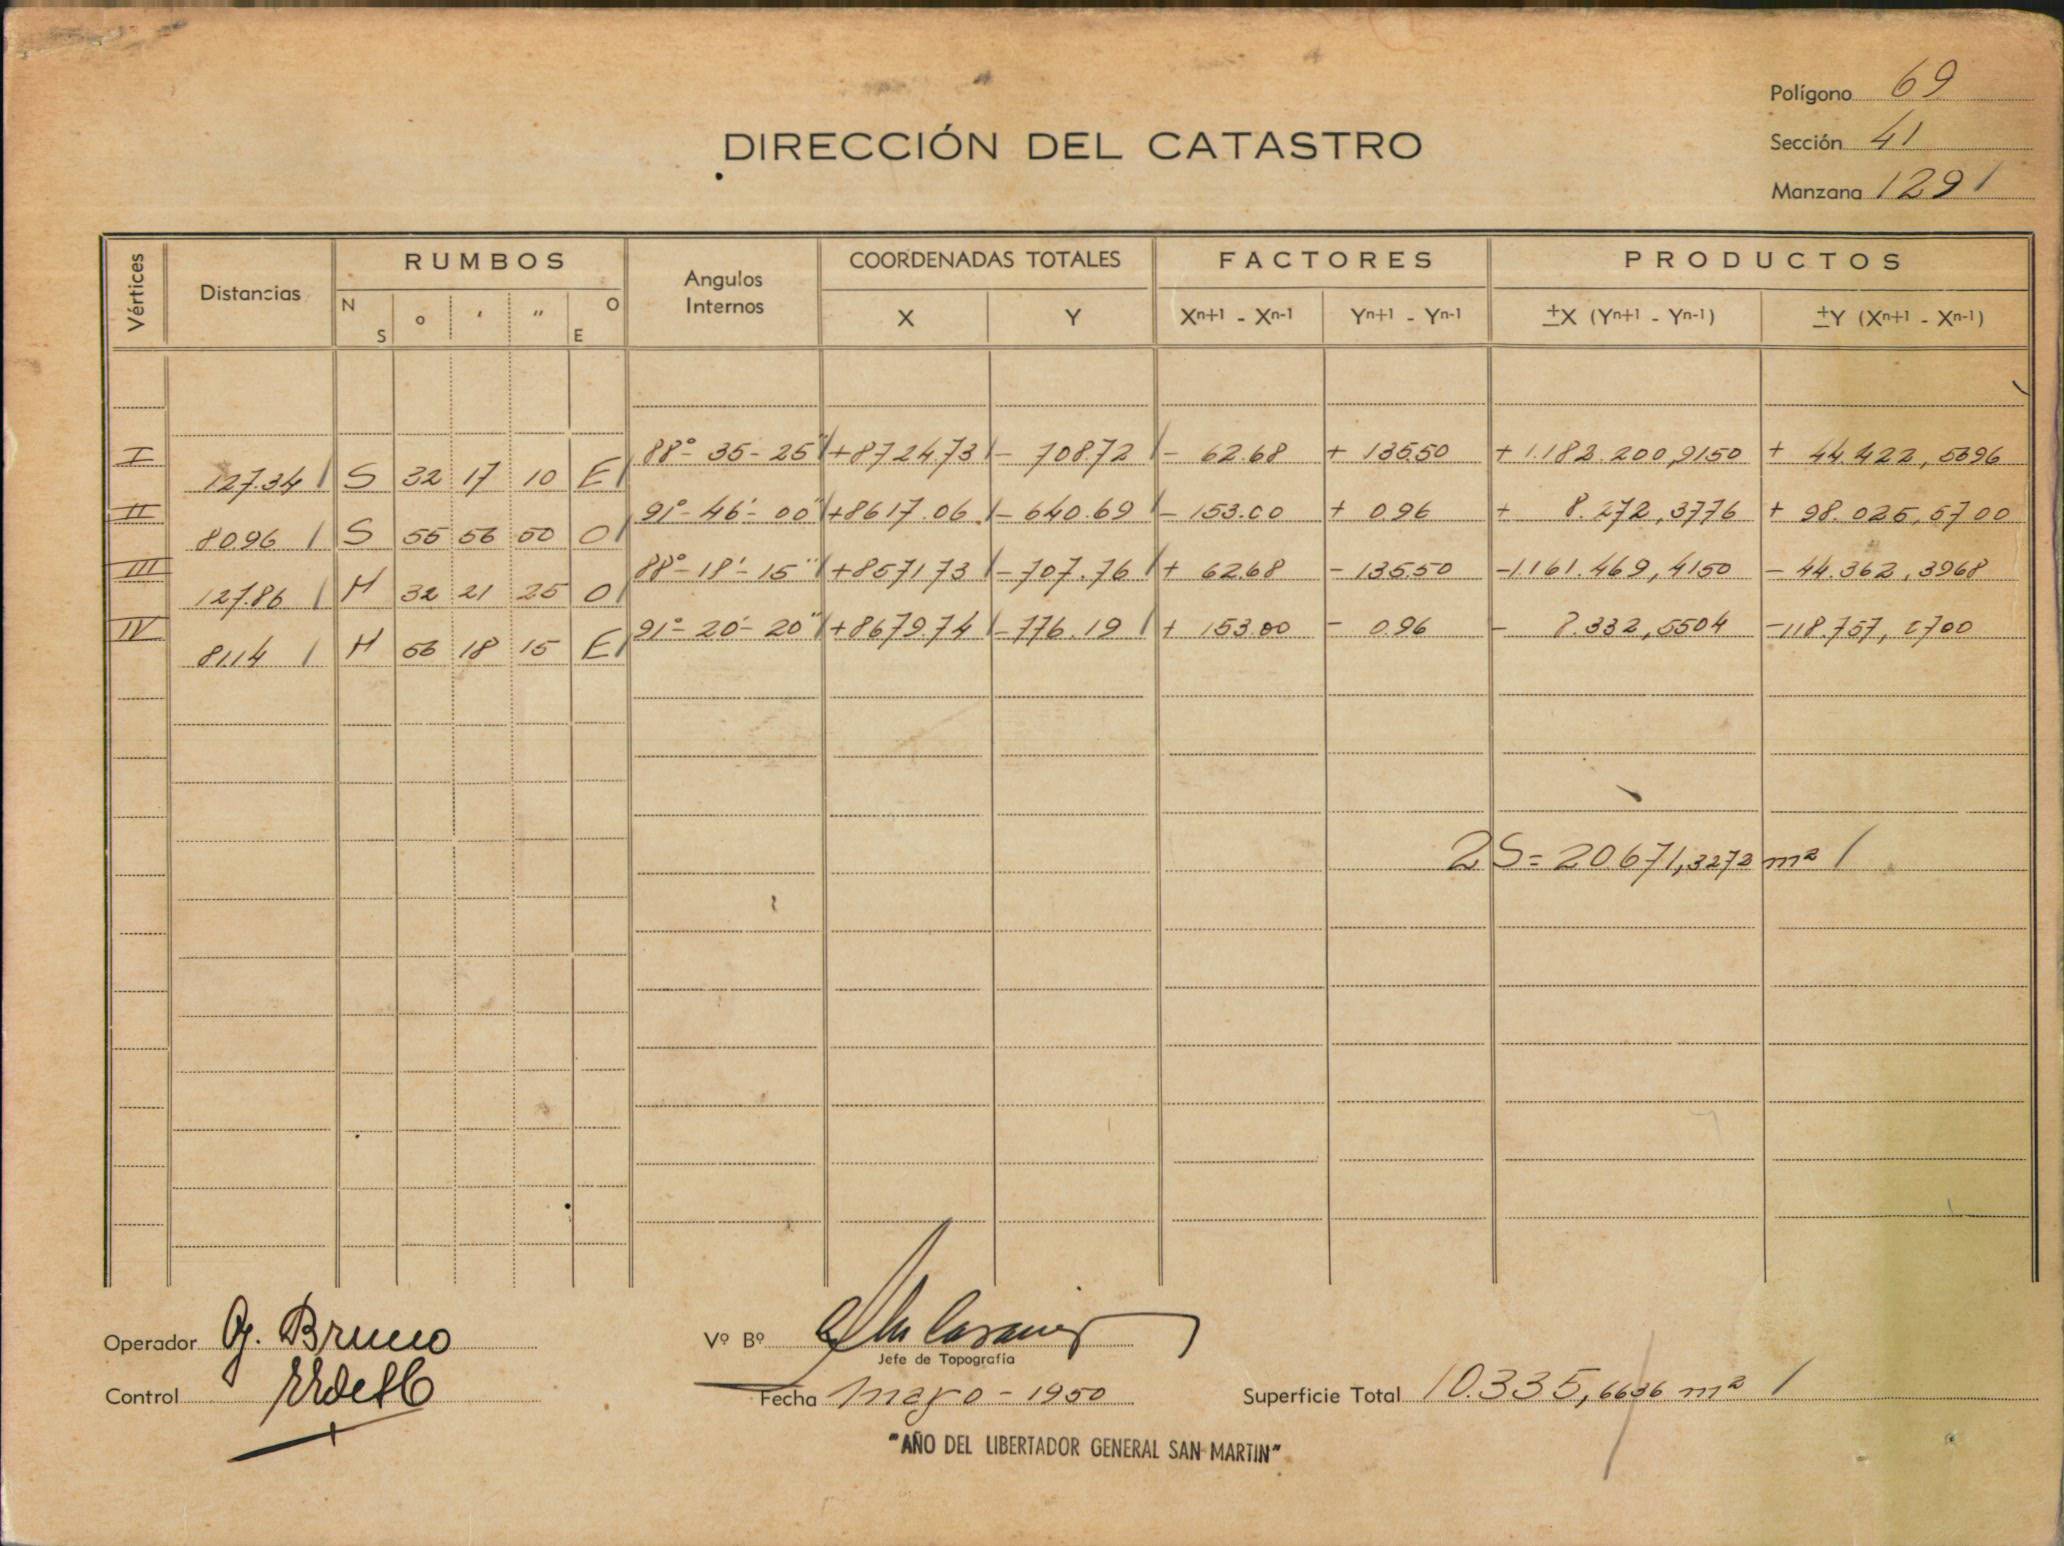 Polígono 69
DIRECCIÓN DEL CATASTRO
Sección 41
Manzana 129 /
Vértices Distancias RUMBOS Angulos Internos COORDENADAS TOTALES FACTORES PRODUCTOS
N S ° ' " O E X Y Xn+1 - Xn-1 Yn+1 - Yn-1 ±X (Yn+1 - Yn-1) ±Y (Xn+1 - Xn-1)
I 88°- 35- 25" +8724.73 - 708.72 - 62.68 + 135.50 + 1.182.200,9150 + 44.422,5696
127.34 S 32 17 10 E
II 91°- 46'- 00" +8617.06 - 640.69 - 153.00 + 0.96 + 8.272,3776 + 98.025,5700
80.96 S 55 56 50 O
III 88°- 18'- 15" +8571.73 - 707.76 + 62.68 - 135.50 -1.161.469,4150 - 44.362,3968
127.86 N 32 21 25 O
IV 91°- 20'- 20" +8679.74 - 776.19 + 153.00 - 0.96 - 8.332,5504 - 118.757,0700
81.14 N 56 18 15 E
2S = 20.671,3272 m²
Operador G. Bruno Vº Bº
Jefe de Topografía
Control Fecha mayo - 1950 Superficie Total 10.335,6636 m²
"AÑO DEL LIBERTADOR GENERAL SAN MARTIN"